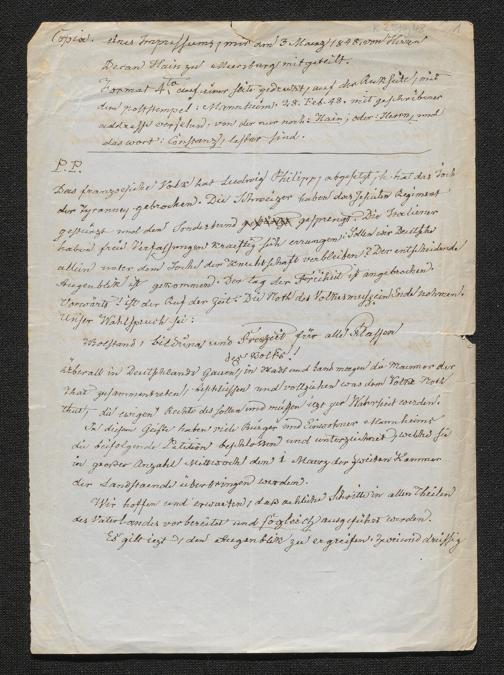 Copia. eines Impressums, mir den 3 Maerz 1848. von Herrn
Decan Hain zu Meersburg mitgeteilt.
Format 4to auf einer seite gedrukt, auf der Rukseite, mit
dem poststempel: Mannheim. 28. Feb. 48. mit geschribner
addresse versehen, von der nur noch: Hain, oder: Herrn, und
das wort: Constanz, lesbar sind.
P.P.
Das französische Volk hat Ludwig Philipp, abgesetzt, hat das Joch
der Tyranney gebrochen. Die Schweizer haben das Jesuiten Regiment
gestürzt und den Sonderbund gesprengt. Die Italiener
haben freie Verfassungen kraeftig sich errungen. Sollen wir Deutsche
allein unter dem Joche der Knechtschaft verbleiben? Der entscheidende
Augenblik ist gekommen. Der tag der Freiheit ist angebrochen.
Vorwärts! ist der Ruf der Zeit. Die Noth des Volkes muss ein Ende nehmen.
Unser Wahlspruch sei:
Wolstand, bildung und Freiheit für alle Klassen
des Volks!
Überall in Deutschlands Gauen, in stadt und land mögen die Maenner der
That zusammentreten, beschliessen und vollziehen was dem Volke Noth
thut, die ewigen Rechte desselben und müssen jezt zur Wahrheit werden.
In diesem Geiste haben viele Bürger und Einwohner Mannheims
die beifolgende Petition beschlossen und unterzeichnet, welche sie
in grosser Anzahl Mittwoch den 1 Maerz der zweiten Kammer
der Landstaende überbringen werden.
Wir hoffen und erwarten, dass aehnliche Schritte in allen Theilen
des Vaterlandes vorbereitet und sogleich ausgeführt werden.
Es gilt jezt, den Augenblik zu ergreifen. Zweiunddreissig